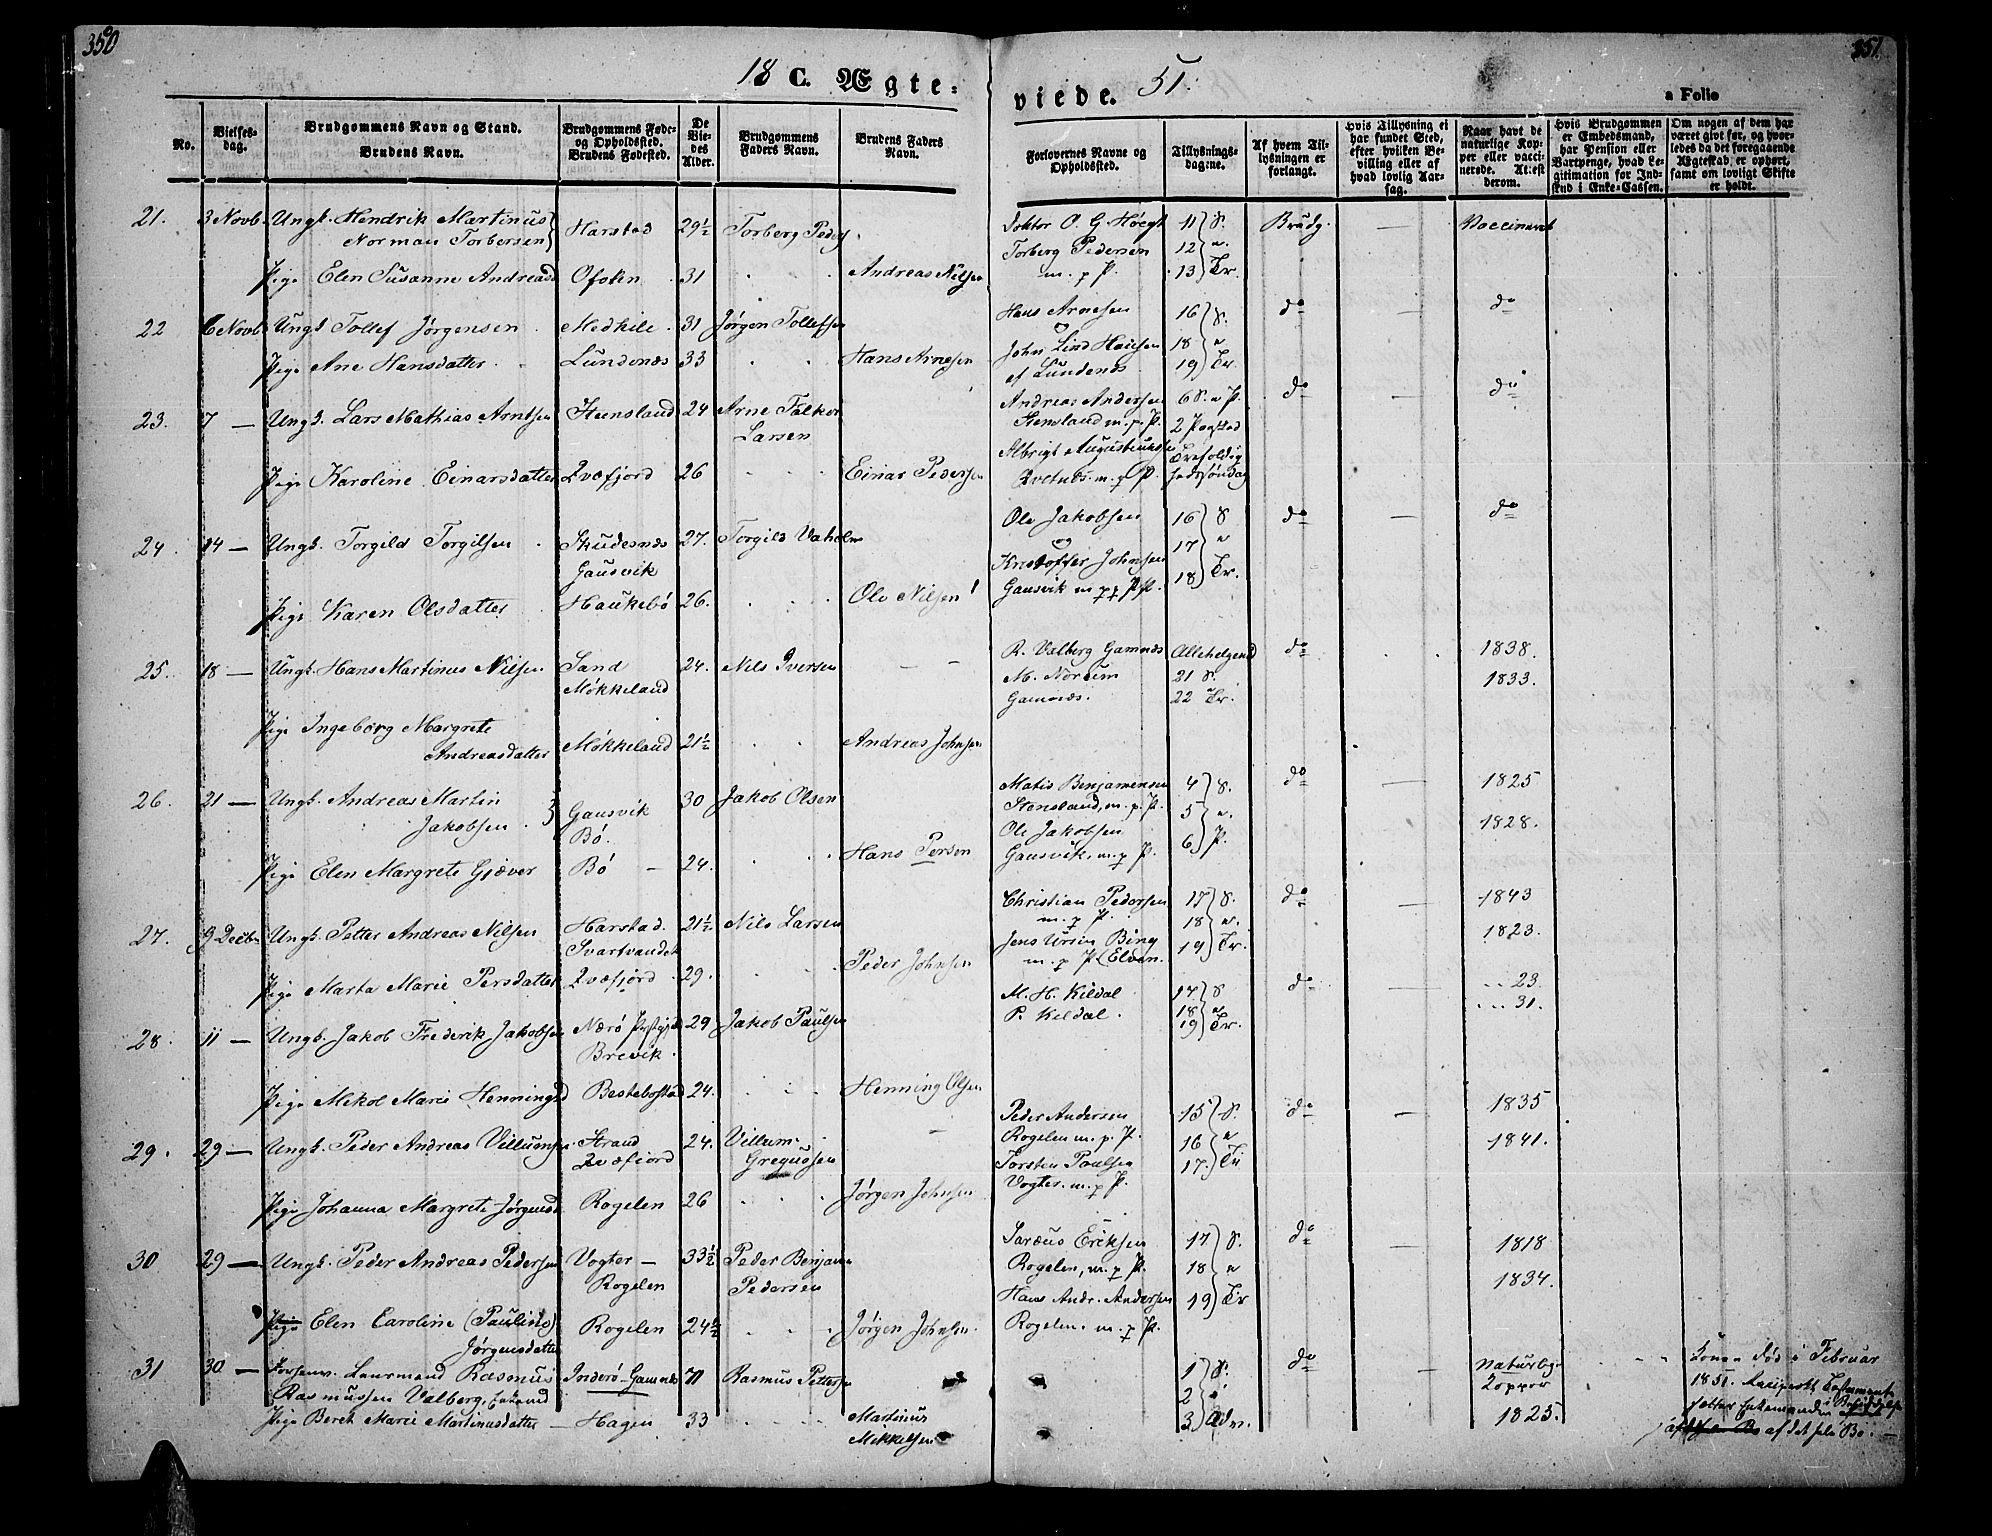 350
351.
18 C. Ægte-
viede. 51.
a Folio
No.
Vielses-
dag.
Brudgommens Navn og Stand.
Brudens Navn.
Brudgommens Føde-
og Opholdssted.
Brudens Fødested.
De
Vie-
des
Alder.
Brudgommens
Faders Navn.
Brudens Faders
Navn.
Forlovernes Navne og
Opholdssted.
Tillysnings-
dagene.
Af hvem Til-
lysningen er
forlangt.
Hvis Tillysning ei
har fundet Sted,
efter hvilken Be-
villing eller af
hvad lovlig Aar-
sag.
Naar havt de
naturlige Kop-
per eller vacci-
nerede. At:est
derom.
Hvis Brudgommen
er Embedsmand,
har Pension eller
Vartpenge, hvad Le-
gitimation for Ind-
skud i Enke-Cassen.
Om nogen af dem har
været givt før, og hvor-
ledes da det foregaaende
Ægteskab er ophørt,
samt om lovligt Skifte
er holdt.
21. 3 Novb. Ungk. Hendrik Martinus Harstad 29½ Torberg Peders Doktor O. G. Høegh 11 S. Brudg. — Vaccineret
Norman Torbersen Torberg Pedersen 12 e.
Pige Elen Susanne Andreasd Ofoten 31 Andreas Nilsen m. p. P. 13 Tr.
22 6 Novb Ungk. Tollef Jørgensen Medkile 31 Jørgen Tollefsen Hans Arnesen 16 S. do — do
og
Pige Ane Hansdatter Lundenæs 33 Hans Arnesen John Lind Hansen 18 e
af Lundenæs 19 Tr.
23. 7 — Ungk. Lars Mathias Arntsen Stensland 24 Arne Falkor Andreas Andersen 6 S. e P. do — do
Larsen Stensland m. p. P. 2 Pagstad
Albrigt Augustinusen
Pige Karoline Einarsdatter Qvæfjord 26 Einar Pedersen Qvetnæs m. p. P.
24. 14 — Ungk. Torgild Torgilsen Skudesnæs 27. Torgils Vaholm Ole Jakobsen 16 S do — do
Gausvik og 17 e
Kristoffer Johnsen
Pige Karen Olsdatter Haukebø 26. Ole Nilsen Gausvik m. p. P. 18 Tr.
25. 18 — Ungk. Hans Martinus Nilsen Sand 24. Nils Iversen — — R. Valberg Gamnæs Allehelgend do 1838.
Møkkeland M. Norum 21 S. 1833.
Gamnæs. 22 Tr.
Pige Ingeborg Margrete
Andreasdatter Møkkeland 21½ Andreas Johnsen
26. 21 — Ungk. Andreas Martin Gausvik 30 Jakob Olsen Matis Benjamensen 4 S. do — 1825
Jakobsen Bø. Stensland, m. p. P. 5 e. 1828.
Ole Jakobsen 6 P.
Pige Elen Margrete Gjæver Bø — 24. Hans Persen Gausvik, m. p. P.
27. 9 Decbr Ungk. Petter Andreas Nilsen Harstad. 21½ Nils Larsen Christian Pedersen 17 S. do — 1843
Svartvandet m. p. P. 18 e. 1823.
Jens Ursin Bing 19 Tr.
Pige Marta Marie Persdatter Qvæfjord 29. Peder Johnsen m. p. P (Elven.
28. 11 — Ungk. Jakob Frederik Jakobsen Nærø Prstgjd 29 Jakob Paulsen M. H. Kildal 17 S do — 23.
Brevik. P. Kildal. 18 e 31.
19 Tr.
Pige Mikol Marie Henningsd Bestebostad 24. Henning Olsen
29. 29 — Ungk. Peder Andreas Villumsen Strand 24. Villum Peder Andersen 15 S. do — 1835
Qvæfjord Gregusen Rogelen m. p. P. 16 e 1841.
Torsten Paulsen 17. Tr
Pige Johanna Margrete Jørgensd Rogelen 26 Jørgen Johnsen Vogter. m. p. P.
30 29 — Ungk. Peder Andreas Pedersen Vogter — 33½ Peder Benjam Saræus Eriksen 17 S. do — 1818
Rogelen Pedersen Rogelen, m. p. P. 18 e 1834.
Hans Andr. Andersen 19 Tr
Pige Elen Caroline (Pauline) Rogelen 24½ Jørgen Johnsen Rogelen. m. p. P.
Jørgensdatter
31 30 — Lensmand Rasmus Inderø-Gamnæs Rasmus Pettersen 1 S. do — Naturlige Konen død i Februar
Rasmussen Valberg, Enkemd 2 e Kopper 1851.
Pige Beret Marie Martinusdatter — Hagen 33 Martinus 3 Adv. 1825.
Mikkelsen af det hele Bo. —